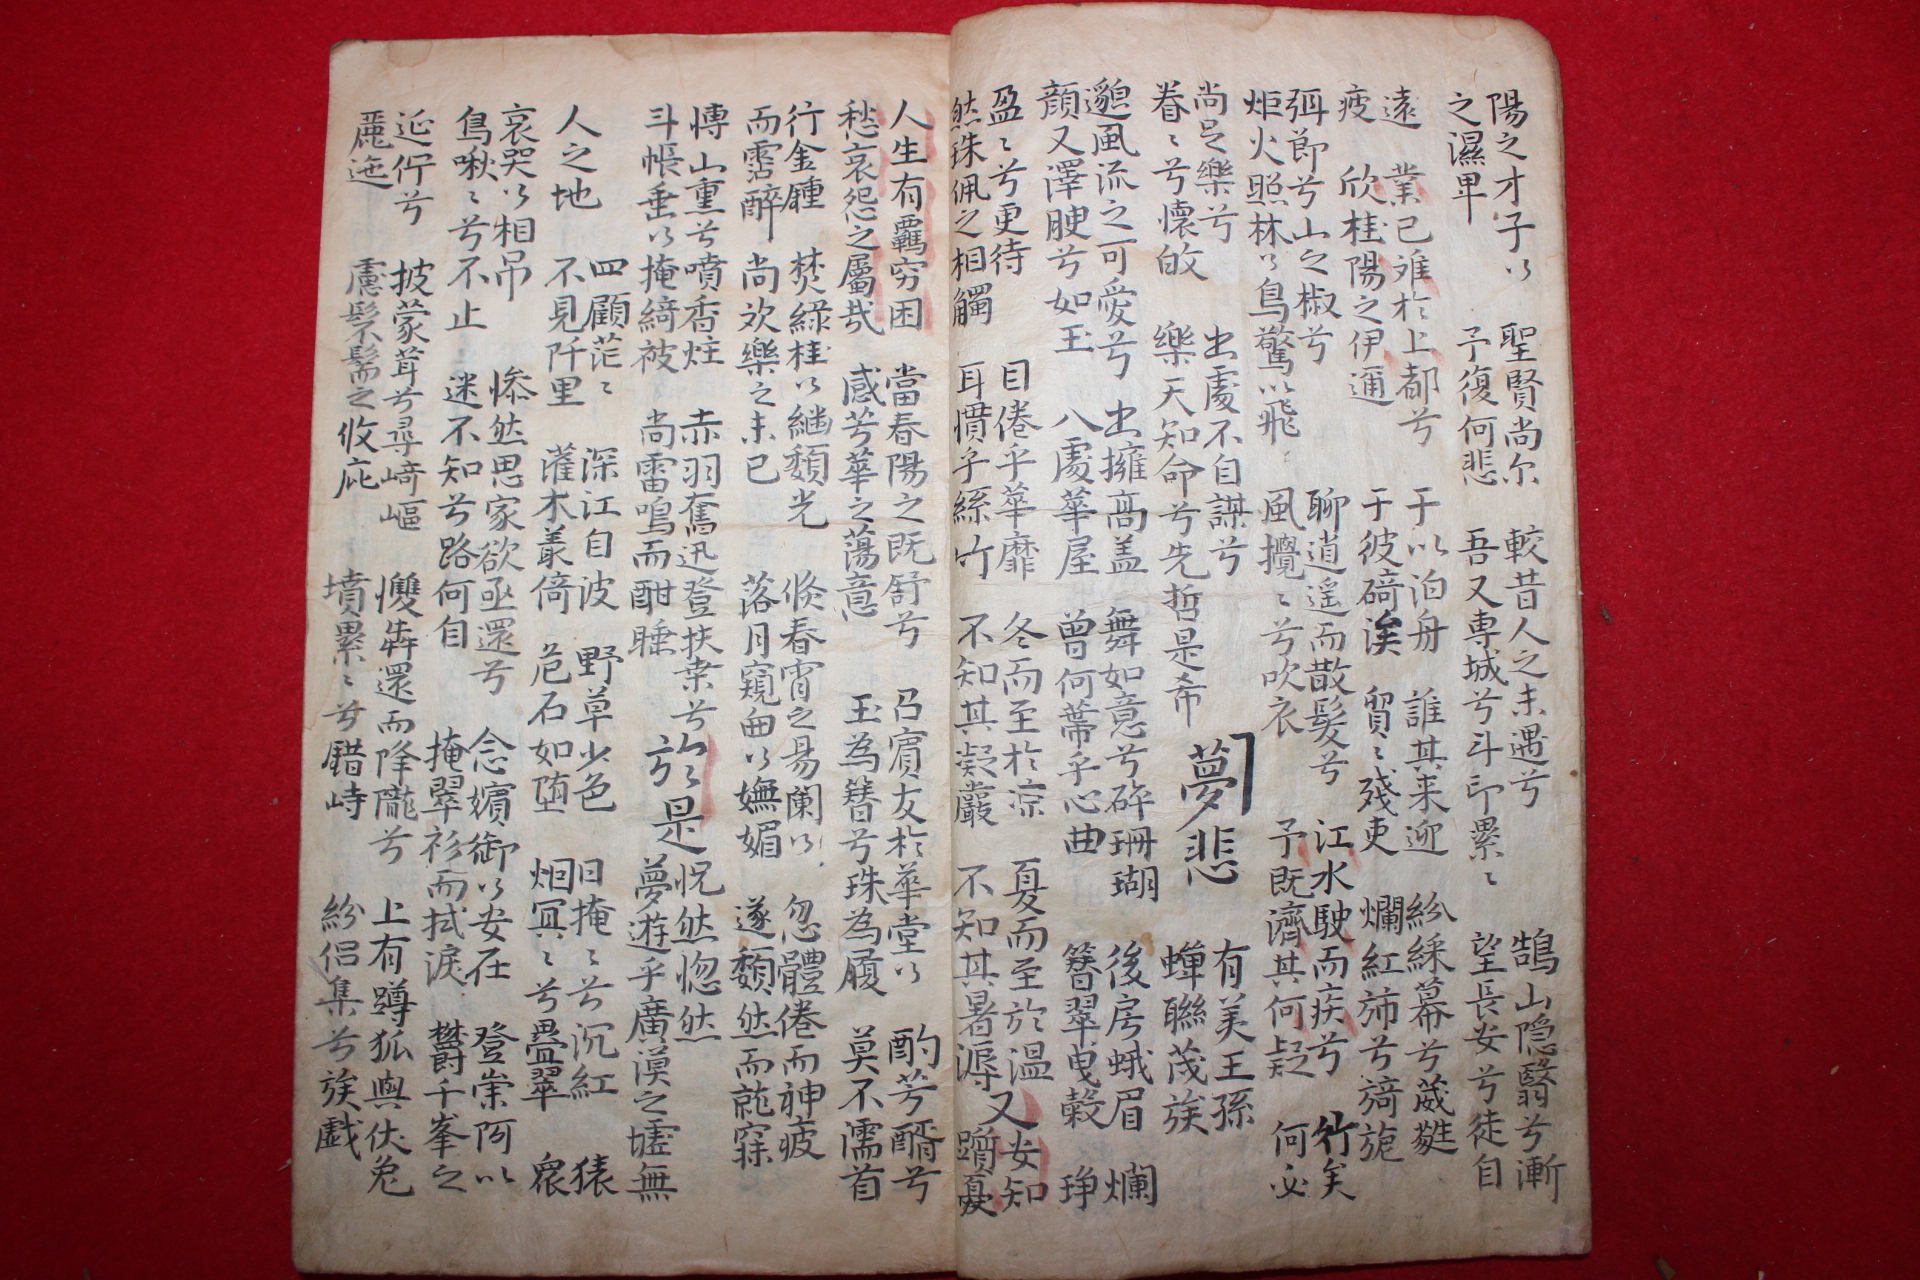 陽之才子以 聖賢尚尔 較昔人之未遇兮 鵠山隐翳兮漸
之濕卑 予復何悲 吾又專城兮斗印累〻 望長安兮徒自
遠 業已难於上都兮 于以泊舟 誰其来迎 紛綵幕兮葳蕤
疲 欣桂陽之伊邇 于彼碕涘 貿〻殘吏 爛紅斾兮旖旎
弭節兮山之椒兮 聊逍遥而散髮兮 江水駛而疾兮 行矣
炬火照林以鳥驚以飛〻 風攪〻兮吹衣 予既濟其何疑 何必
尚足樂兮 出處不自謀兮
眷〻兮懷故 樂天知命兮先哲是希
夢悲
有美王孫
蟬聯茂族
邈風流之可愛兮 出擁高盖 舞如意兮碎珊瑚 後房蛾眉 爛
顔又澤腴兮如玉 八處華屋 曾何蔕乎心曲 簪翠曳縠 琤
盈〻兮更待 目倦乎華靡 冬而至於凉 夏而至於温 又安知
然珠佩之相觸 耳慣乎絲竹 不知其凝嚴 不知其暑溽 憂
人生有羈窮困 當春陽之既舒兮 召賓友於華堂以 酌芳醑兮
愁哀怨之屬哉 感芳華之蕩意 玉為簪兮珠為履 莫不濡首
行金鍾 焚綠桂以繼頹光 倏春宵之易闌以 忽體倦而神疲
而霑醉 尚欢樂之未已 落月窺曲以嫵媚 遂頹然而就寐
博山熏兮噴香炷 赤羽奮迅登扶桒兮 怳然惚然
斗帳垂以掩綺被 尚雷鳴而酣睡 於是 夢遊乎廣漠之墟無
人之地 四顧茫〻 深江自波 野草少色 日掩〻兮沉紅 猿
不見阡里 灌木叢倚 危石如堕 烟冥〻兮疊翠 衆
哀哭以相吊 惨然思家欲亟還兮 念嬪御以安在 登崇阿以
鳥啾〻兮不止 迷不知兮路何自 掩翠衫而拭淚 欝千峯之
延佇兮 披蒙茸兮尋崎嶇 還而降隴兮 上有蹲狐與伏兔
麗迤 慮鬆髵之攸庇 墳累〻兮錯峙 紛侣集兮族戯